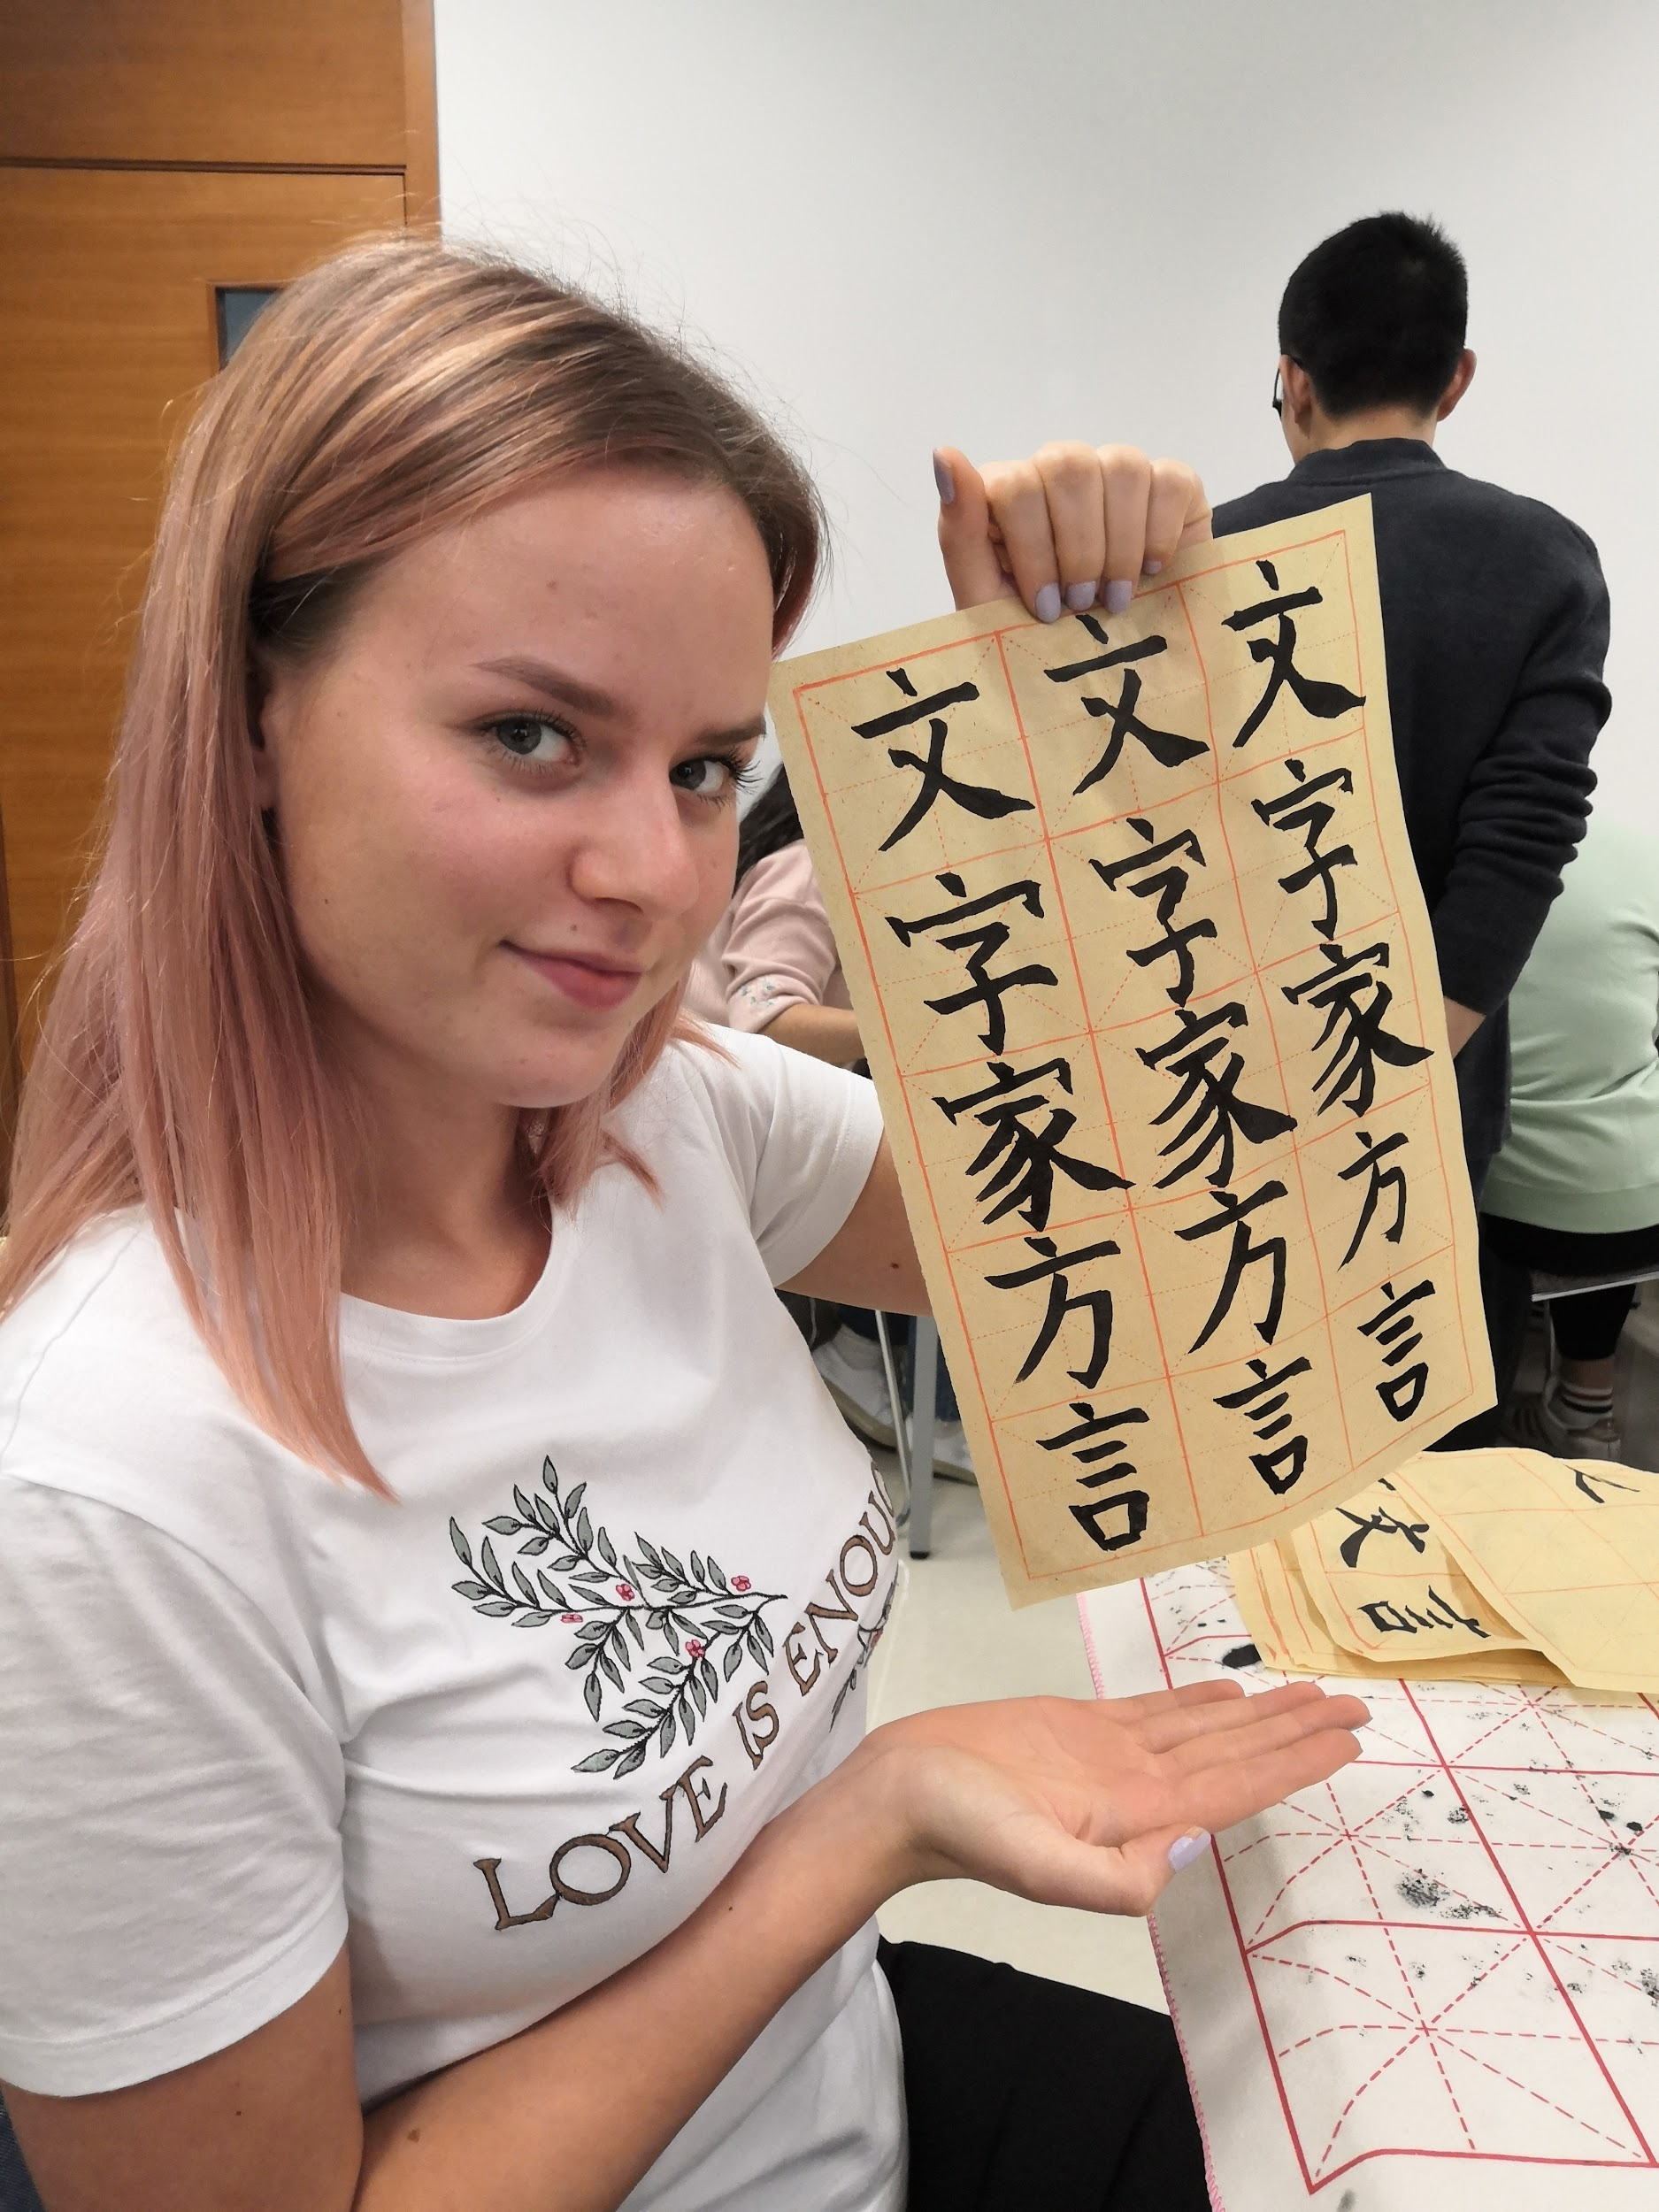 文字家方言
文字家方言
文字家方言
LOVE IS ENOUG
文
言